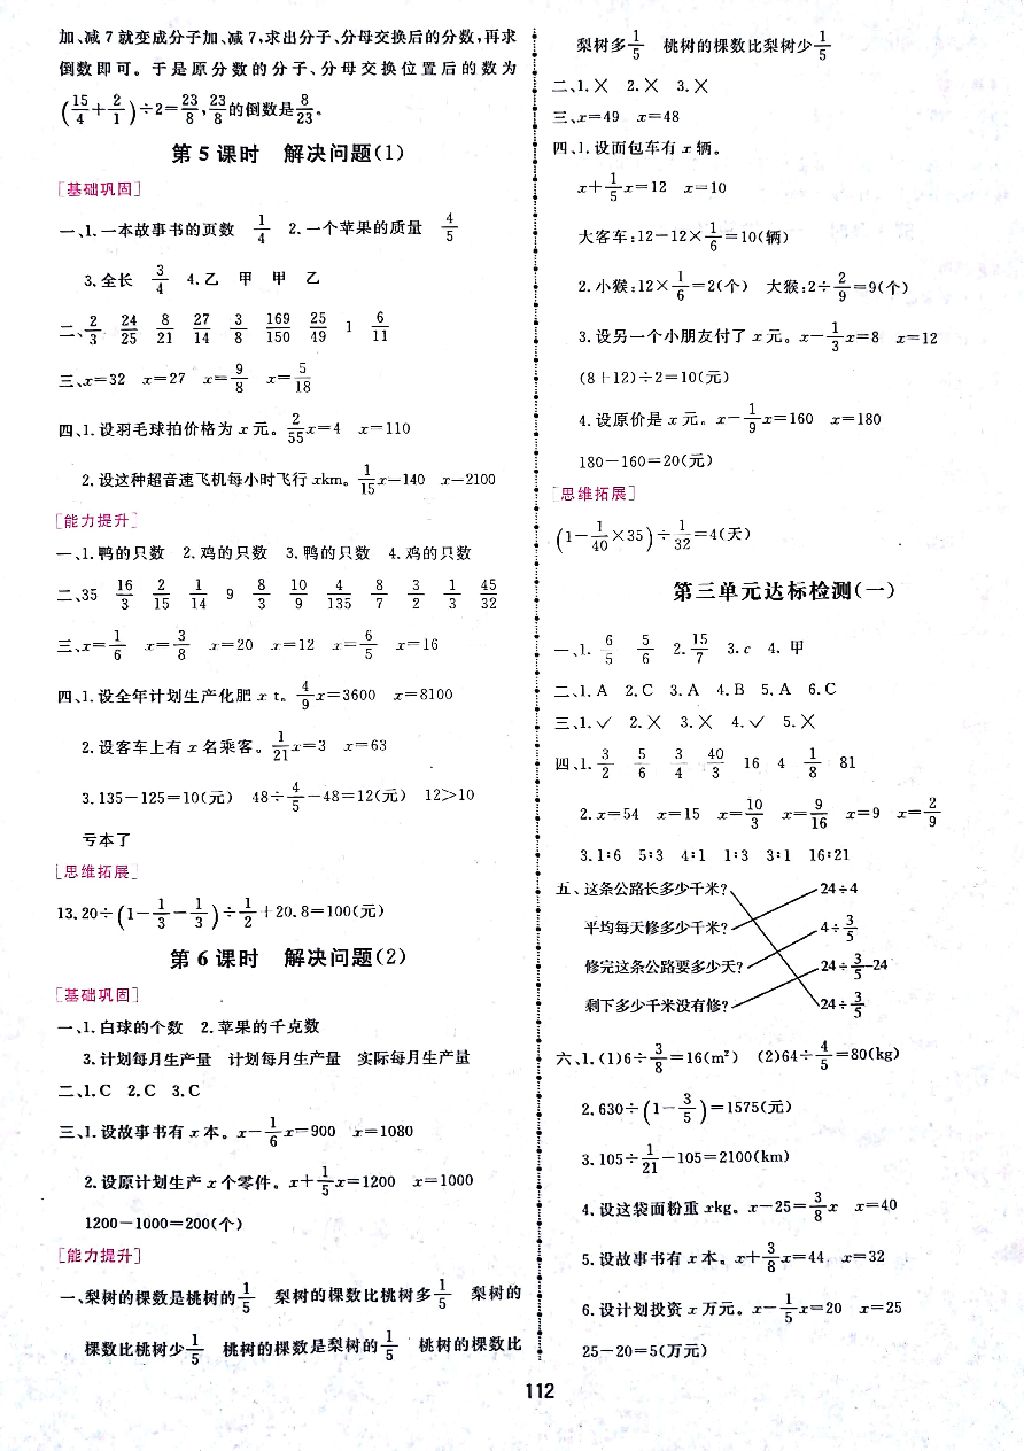 加、减7就变成分子加、减7,求出分子、分母交换后的分数,再求
倒数即可。于是原分数的分子、分母交换位置后的数为
(15/4+2/1)÷2=23/8,23/8的倒数是8/23。
第5课时 解决问题(1)
[基础巩固]
一、1.一本故事书的页数 1/4 2.一个苹果的质量 4/5
3.全长 3/4 4.乙 甲 甲 乙
二、2/3 24/25 8/21 27/14 3/8 169/150 25/49 1 6/11
三、x=32 x=27 x=9/8 x=5/18
四、1.设羽毛球拍价格为x元。2/55x=4 x=110
2.设这种超音速飞机每小时飞行xkm。1/15x=140 x=2100
[能力提升]
一、1.鸭的只数 2.鸡的只数 3.鸭的只数 4.鸡的只数
二、35 16/3 2/15 1/14 9 8/3 10/9 4/135 8/7 3/2 1/3 45/32
三、x=1/6 x=3/8 x=20 x=12 x=6/5 x=16
四、1.设全年计划生产化肥x t。4/9x=3600 x=8100
2.设客车上有x名乘客。1/21x=3 x=63
3.135-125=10(元) 48÷4/5-48=12(元) 12>10
亏本了
[思维拓展]
13.20÷(1-1/3-1/3)÷1/2+20.8=100(元)
第6课时 解决问题(2)
[基础巩固]
一、1.白球的个数 2.苹果的千克数
3.计划每月生产量 计划每月生产量 实际每月生产量
二、1.C 2.C 3.C
三、1.设故事书有x本。x-1/6x=900 x=1080
2.设原计划生产x个零件。x+1/5x=1200 x=1000
1200-1000=200(个)
[能力提升]
一、梨树的棵数是桃树的1/5 梨树的棵数比桃树多1/5 梨树的
棵数比桃树少1/5 桃树的棵数是梨树的1/5 桃树的棵数比
梨树多1/5 桃树的棵数比梨树少1/5
二、1.× 2.× 3.×
三、x=49 x=48
四、1.设面包车有x辆。
x+1/5x=12 x=10
大客车:12-12×1/6=10(辆)
2.小猴:12×1/6=2(个) 大猴:2÷2/9=9(个)
3.设另一个小朋友付了x元。x-1/3x=8 x=12
(8+12)÷2=10(元)
4.设原价是x元。x-1/9x=160 x=180
180-160=20(元)
[思维拓展]
(1-1/40×35)÷1/32=4(天)
第三单元达标检测(一)
一、1.6/5 5/6 2.15/7 3.c 4.甲
二、1.A 2.C 3.A 4.B 5.A 6.C
三、1.✓ 2.× 3.× 4.✓ 5.×
四、1.3/2 5/6 3/4 40/3 16 4 1/8 81
2.x=54 x=15 x=10/3 x=9/16 x=9 x=2/9
3.1∶6 5∶3 4∶1 1∶3 3∶1 16∶21
五、这条公路长多少千米? 24÷4
平均每天修多少千米? 4÷3/5
修完这条公路要多少天? 24÷3/5-24
剩下多少千米没有修? 24÷3/5
六、1.(1)6÷3/8=16(m²) (2)64÷4/5=80(kg)
2.630÷(1-3/5)=1575(元)
3.105÷1/21-105=2100(km)
4.设这袋面粉重xkg。x-25=3/8x x=40
5.设故事书有x本。x+3/8x=44 x=32
6.设计划投资x万元。x-1/5x=20 x=25
25-20=5(万元)
112